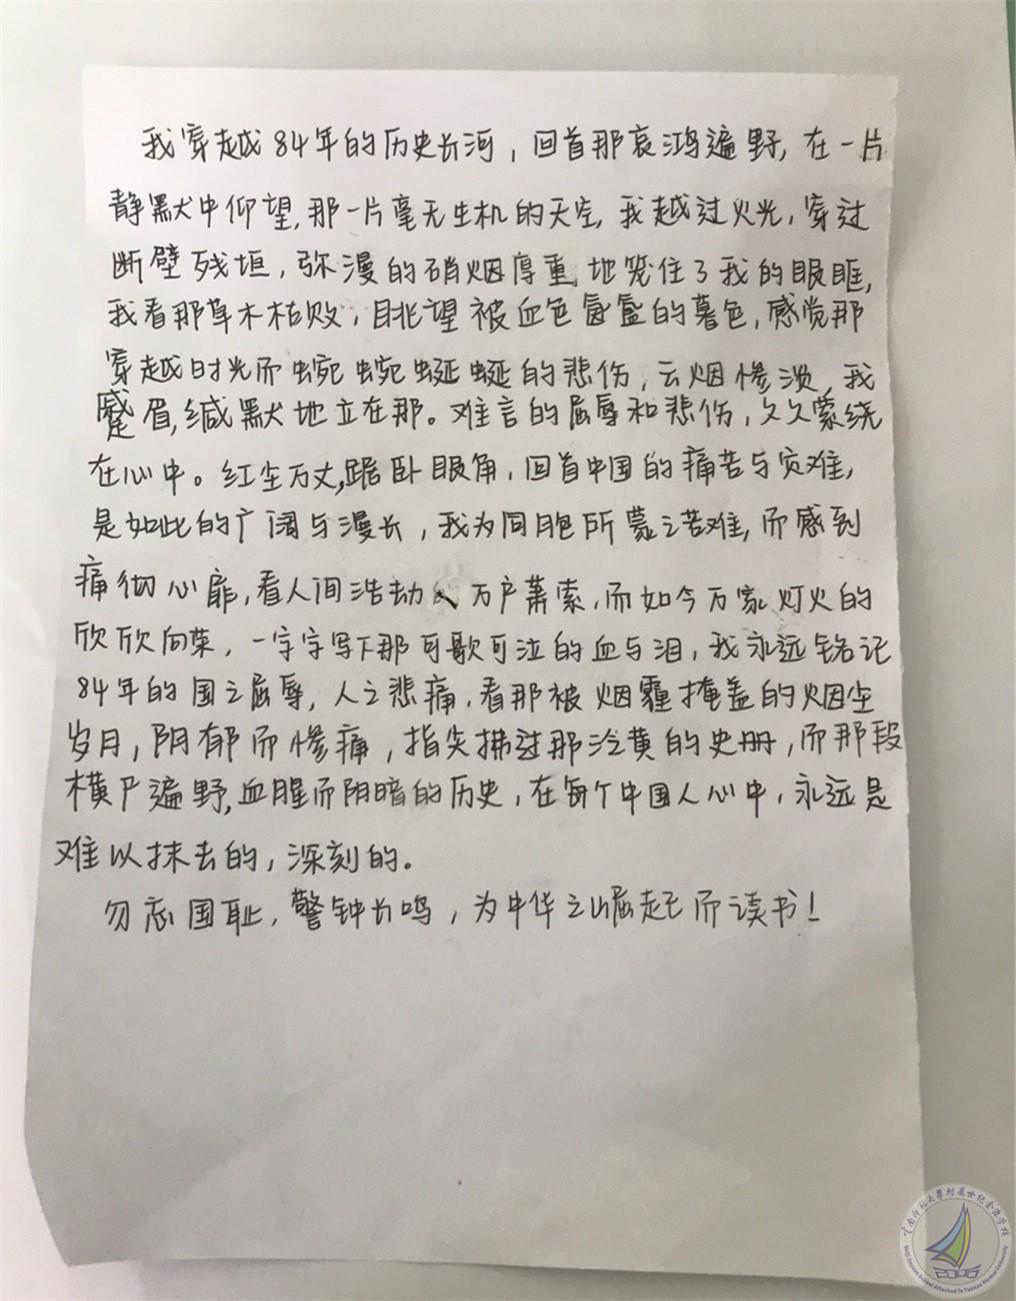 我穿越84年的历史长河，回首那哀鸿遍野，在一片
静默中仰望，那一片毫无生机的天空，我越过火光，穿过
断壁残垣，弥漫的硝烟厚重地笼住了我的眼眶，
我看那草木枯败，眺望被血色氤氲的暮色，感觉那
穿越时光而蜿蜿蜒蜒的悲伤，云烟惨淡，我
蹙眉，缄默地立在那。难言的屈辱和悲伤，久久萦绕
在心中。红尘万丈，踏卧眼角，回首中国的痛苦与灾难，
是如此的广阔与漫长，我为同胞所蒙之苦难，而感到
痛彻心扉，看人间浩劫 万户萧索，而如今万家灯火的
欣欣向荣，一字字写下那可歌可泣的血与泪，我永远铭记
84年的国之屈辱，人之悲痛，看那被烟霾掩盖的烟尘
岁月，阴郁而惨痛，指尖拂过那泛黄的史册，而那段
横尸遍野，血腥而阴暗的历史，在每个中国人心中，永远是
难以抹去的，深刻的。
勿忘国耻，警钟长鸣，为中华之崛起而读书！
云南师范大学附属世纪金源学校
Shiji Jinyuan School Attached To Yunnan Normal University